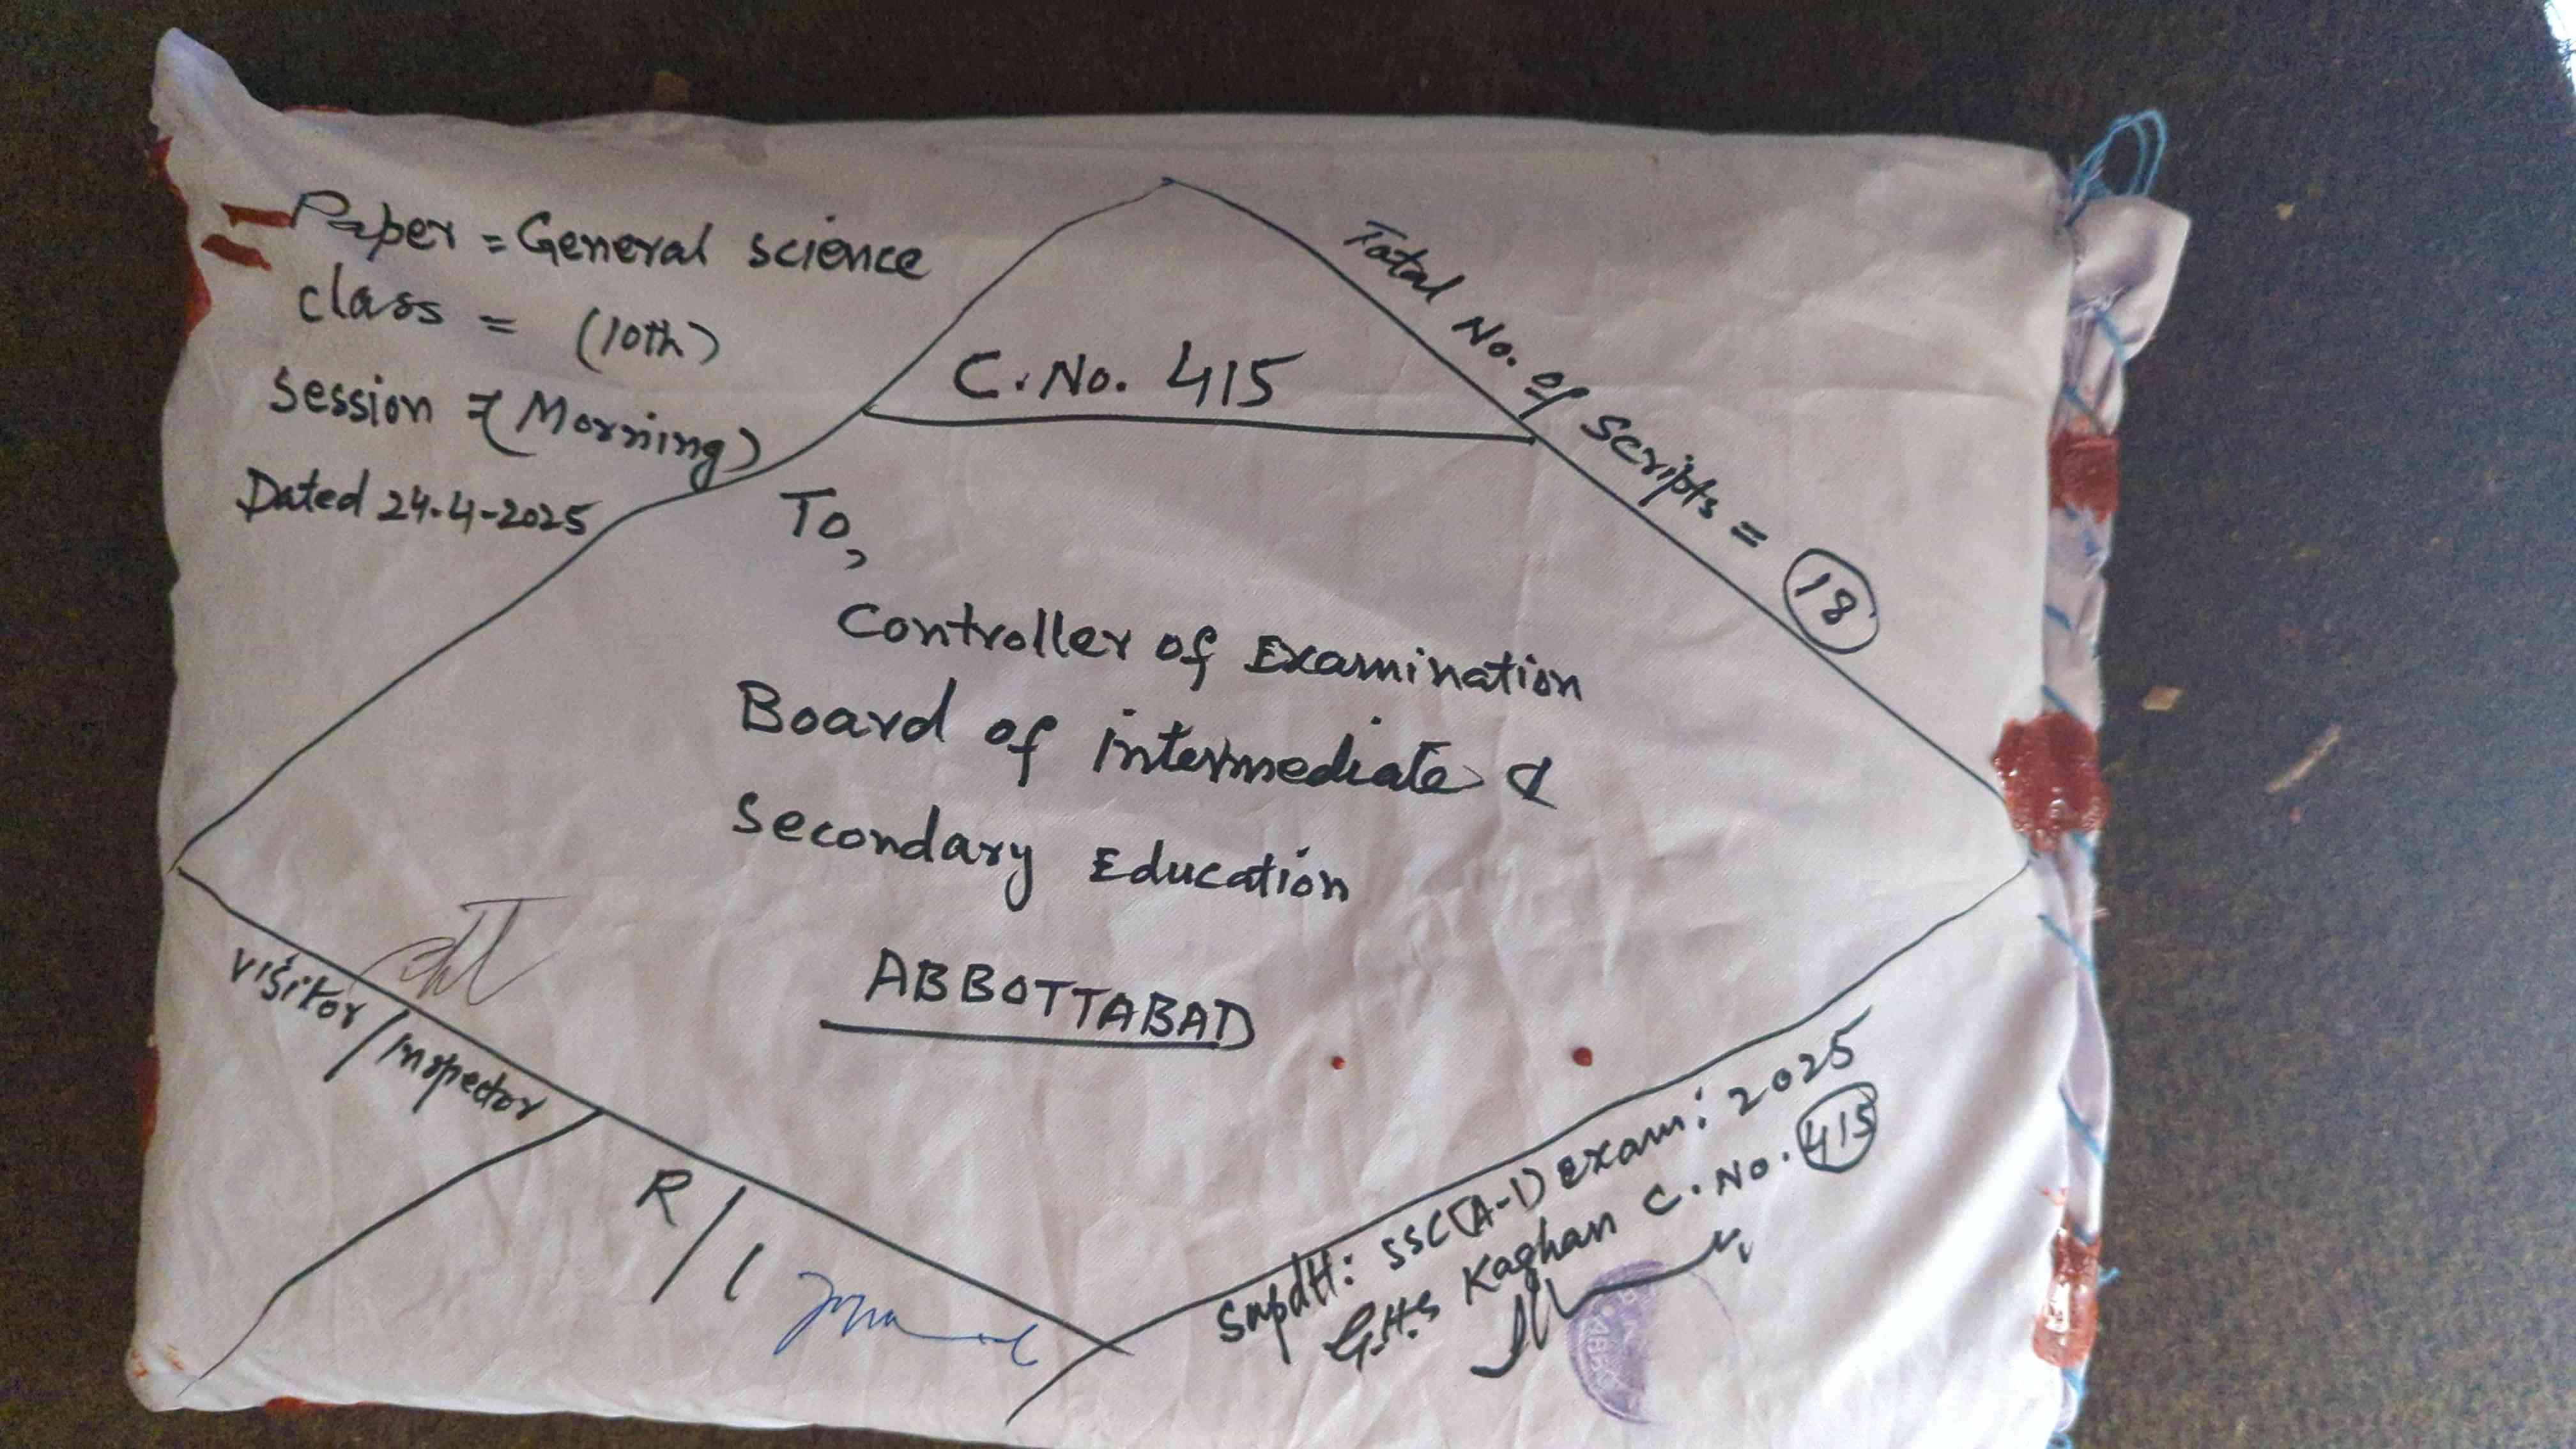 Paper = General science
class = (10th)
Session = (Morning)
Dated 24-4-2025
Total No. of Scripts = 18
C. No. 415
To,
Controller of Examination
Board of intermediate &
Secondary Education
ABBOTTABAD
Visitor/Inspector
R/I
Supdtt: SSC(A-I) exam: 2025
G.H.S Kaghan C. No. 415